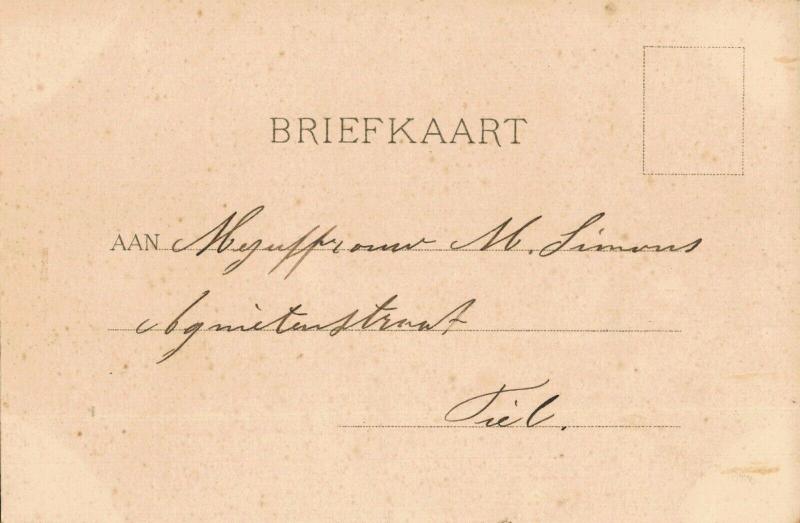 BRIEFKAART
AAN Mejuffrouw M. Simons
Agnietenstraat
Tiel.